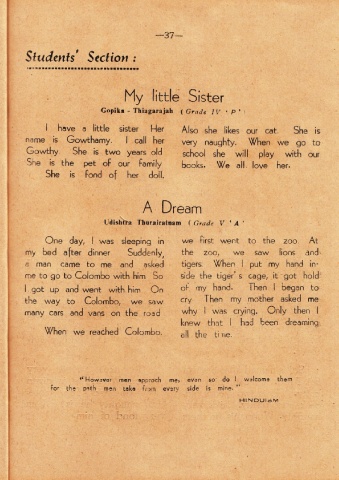 —37—
Students' Section :
My little Sister
Gopika - Thiagarajah ( Grade IV ' P '
I have a little sister Her
name is Gowthamy. I call her
Gowthy. She is two years old
She is the pet of our family
She is fond of her doll.
Also she likes our cat. She is
very naughty. When we go to
school she will play with our
books. We all love her.
A Dream
Udishitra Thurairatnam ( Grade V ' A '
One day, I was sleeping in
my bed after dinner Suddenly,
a man came to me and asked
me to go to Colombo with him So
I got up and went with him On
the way to Colombo, we saw
many cars and vans on the road
When we reached Colombo,
we first went to the zoo. At
the zoo, we saw lions and
tigers When I put my hand in-
side the tiger's cage, it got hold
of my hand. Then I began to
cry Then my mother asked me
why I was crying. Only then I
knew that I had been dreaming
all the time.
"However men approch me, even so do I welcome them
for the path men take from every side is mine."
HINDUISM